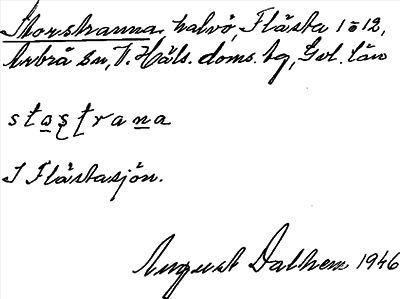 Storstranna, halvö, Flästa 1 o 12,
Arbrå sn, V. Häls. doms. tg, Gvl. län
stostrana
I Flästasjön.
August Dalhem 1946